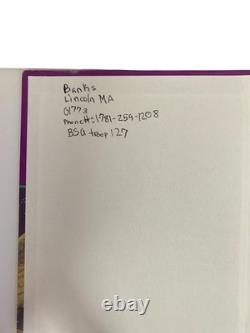 Banks
Lincoln MA
01773
Phone#:1781-259-1208
BSA troop 127
ebay